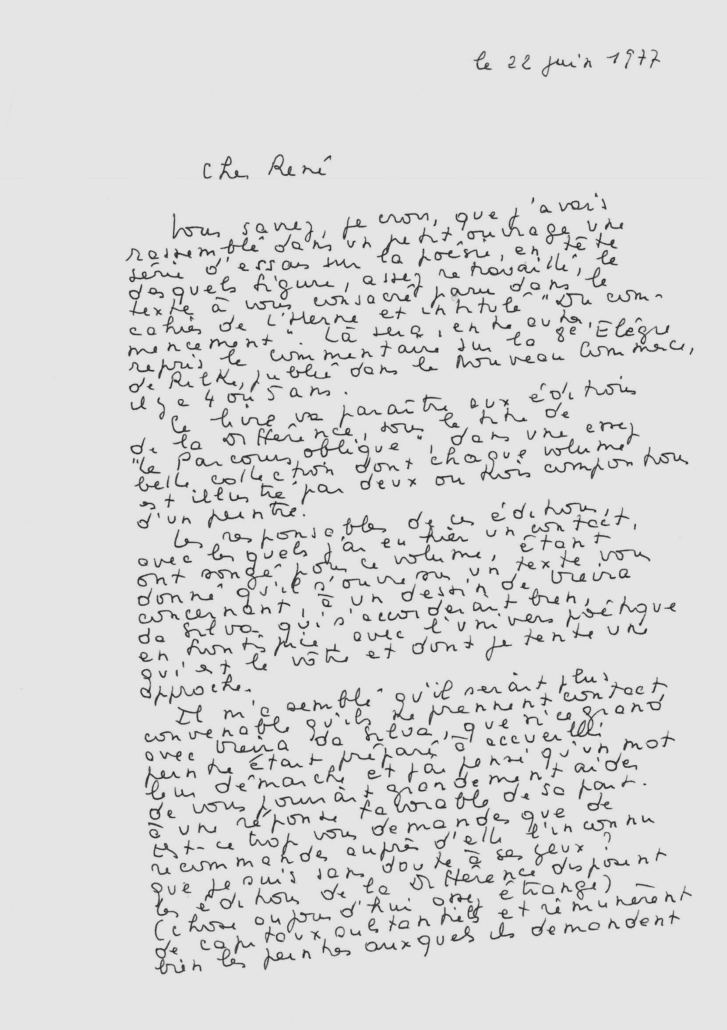 le 22 juin 1977
Cher René
Vous savez, je crois, que j'avais
rassemblé dans un petit ouvrage une
série d'essais sur la poésie, en tête
desquels figure, assez retravaillé, le
texte à vous consacré paru dans le
cahier de l'Herne et intitulé "Du com-
mencement". Là sera, entre autre,
repris le commentaire sur la 8e Elégie
de Rilke, publié dans le Nouveau Commerce,
il y a 4 ou 5 ans.
Ce livre va paraître aux éditions
de la Différence, sous le titre de
"Le Parcours oblique" dans une assez
belle collection dont chaque volume
est illustré par deux ou trois compositions
d'un peintre.
Les responsables de ces éditions,
avec lesquels j'ai eu hier un contact,
ont songé pour ce volume, étant
donné qu'il s'ouvre sur un texte vous
concernant, à un dessin de Vieira
da Silva, qui s'accorderait bien,
en frontispice, avec l'univers poétique
qui est le vôtre et dont je tente une
approche.
Il m'a semblé qu'il serait plus
convenable qu'ils ne prennent contact
avec Vieira da Silva, que si ce grand
peintre était préparé à accueillir
leur démarche et j'ai pensé qu'un mot
de vous pourrait grandement aider
à une réponse favorable de sa part.
Est-ce trop vous demander que de
recommander auprès d'elle l'inconnu
que je suis sans doute à ses yeux ?
Les éditions de la Différence disposent
(chose aujourd'hui assez étrange)
de capitaux substantiels et rémunèrent
bien les peintres auxquels ils demandent